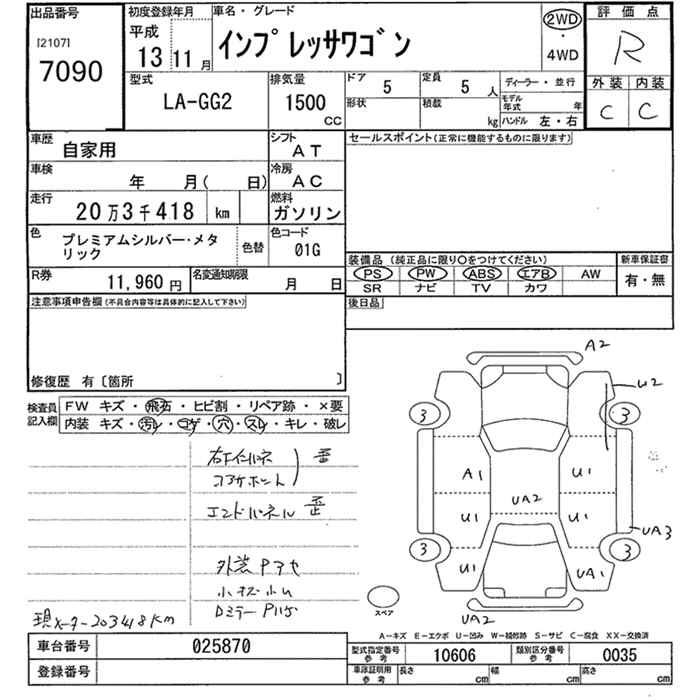 出品番号
[2107]
7090
初度登録年月
平成
13 11 月
車名・グレード
インプレッサワゴン
2WD
・
4WD
評価点
R
外装 内装
C C
型式
LA-GG2
排気量
1500
CC
ドア 5
定員 5 人
形状
積載 kg
ディーラー・並行
モデル年式 年
ハンドル 左・右
車歴 自家用
シフト AT
車検 年 月( 日)
冷房 AC
走行 20万3千418 km
燃料 ガソリン
色 プレミアムシルバー・メタリック
色替
色コード 01G
R券 11,960 円
名変通知期限 月 日
セールスポイント(正常に機能するものに限ります)
装備品 (純正品に限り○をつけてください)
PS PW ABS エアB AW
SR ナビ TV カワ
新車保証書
有・無
後日品
注意事項申告欄(不具合内容等は具体的に記入して下さい)
修復歴 有〔箇所 〕
検査員記入欄
FW キズ・飛石・ヒビ割・リペア跡・×要
内装 キズ・汚レ・コゲ・穴・スレ・キレ・破レ
右Fインパネ
コアサポート
歪
エンドパネル 歪
外装 Pアセ
小キズ小U
現メーター203418Km
A2
U2
3 3
A1 U1
UA2
U1 U1
UA3
3 3
U1 UA1
UA2
スペア
A－キズ E－エクボ U－凹み W－補修跡 S－サビ C－腐食 XX－交換済
車台番号 025870
登録番号
型式指定番号 参考 10606
類別区分番号 参考 0035
車庫証明用 参考 長さ cm 幅 cm 高さ cm